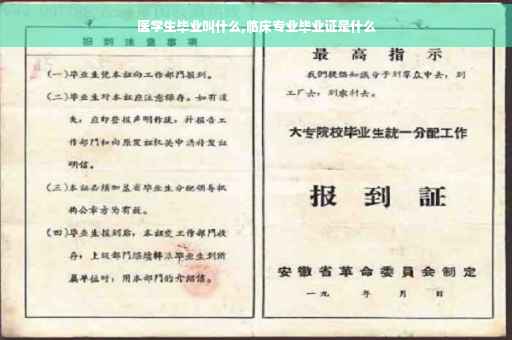 医学生毕业叫什么,临床专业毕业证是什么
报到注意事项
(一)毕业生凭本证向工作部門报到。
(二)毕业生对本证应注意保存。如有遗
失,应即登报声明作废,并报告工
作部門和向原发证机关申請补发证
明信。
(三)本证必须加盖省毕业生分配领导机
构公章方为有效。
(四)毕业生报到后,本证交工作部門收
存;上级部門
毕业生到所
属单位时,用本部門的介绍信。
最高指示
我們提倡知识分子到羣众中去,到
工厂去,到农村去。
大专院校毕业生統一分配工作
报到証
安徽省革命委員会制定
一九 年 月 日